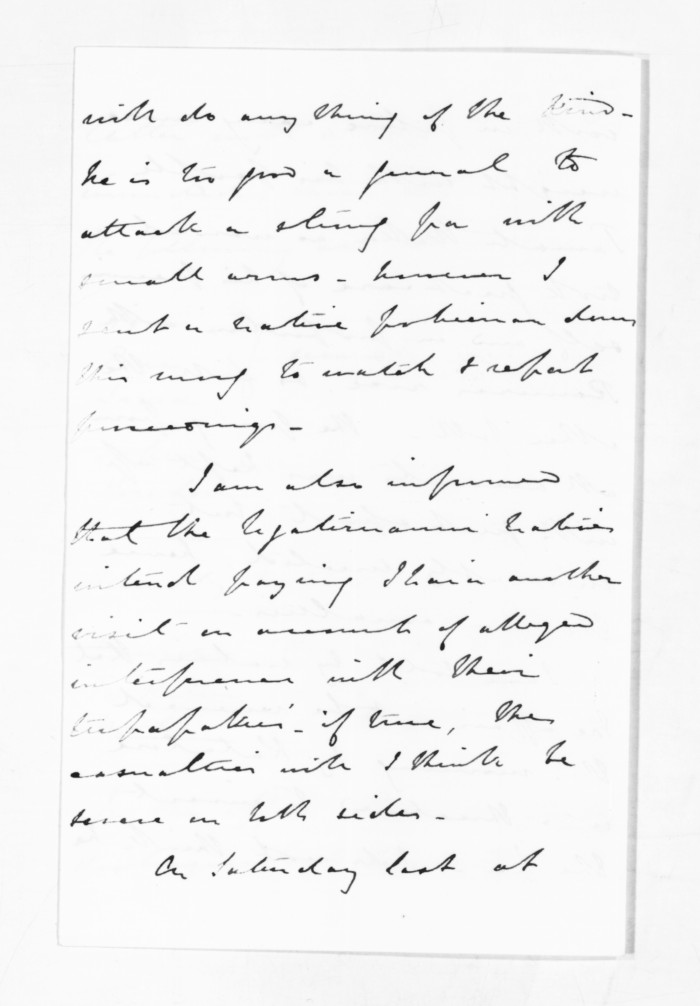 will do any thing of the kind -
he is too good a general to
attack a strong pa with
small arms - however I
sent a native policeman down
this morng to watch & report
proceedings -
I am also informed
that the Ngatiruanui natives
intend paying Ihaia another
visit on account of alleged
interference with their
. if true, the
casualties will I think be
severe on both sides -
On Saturday last at